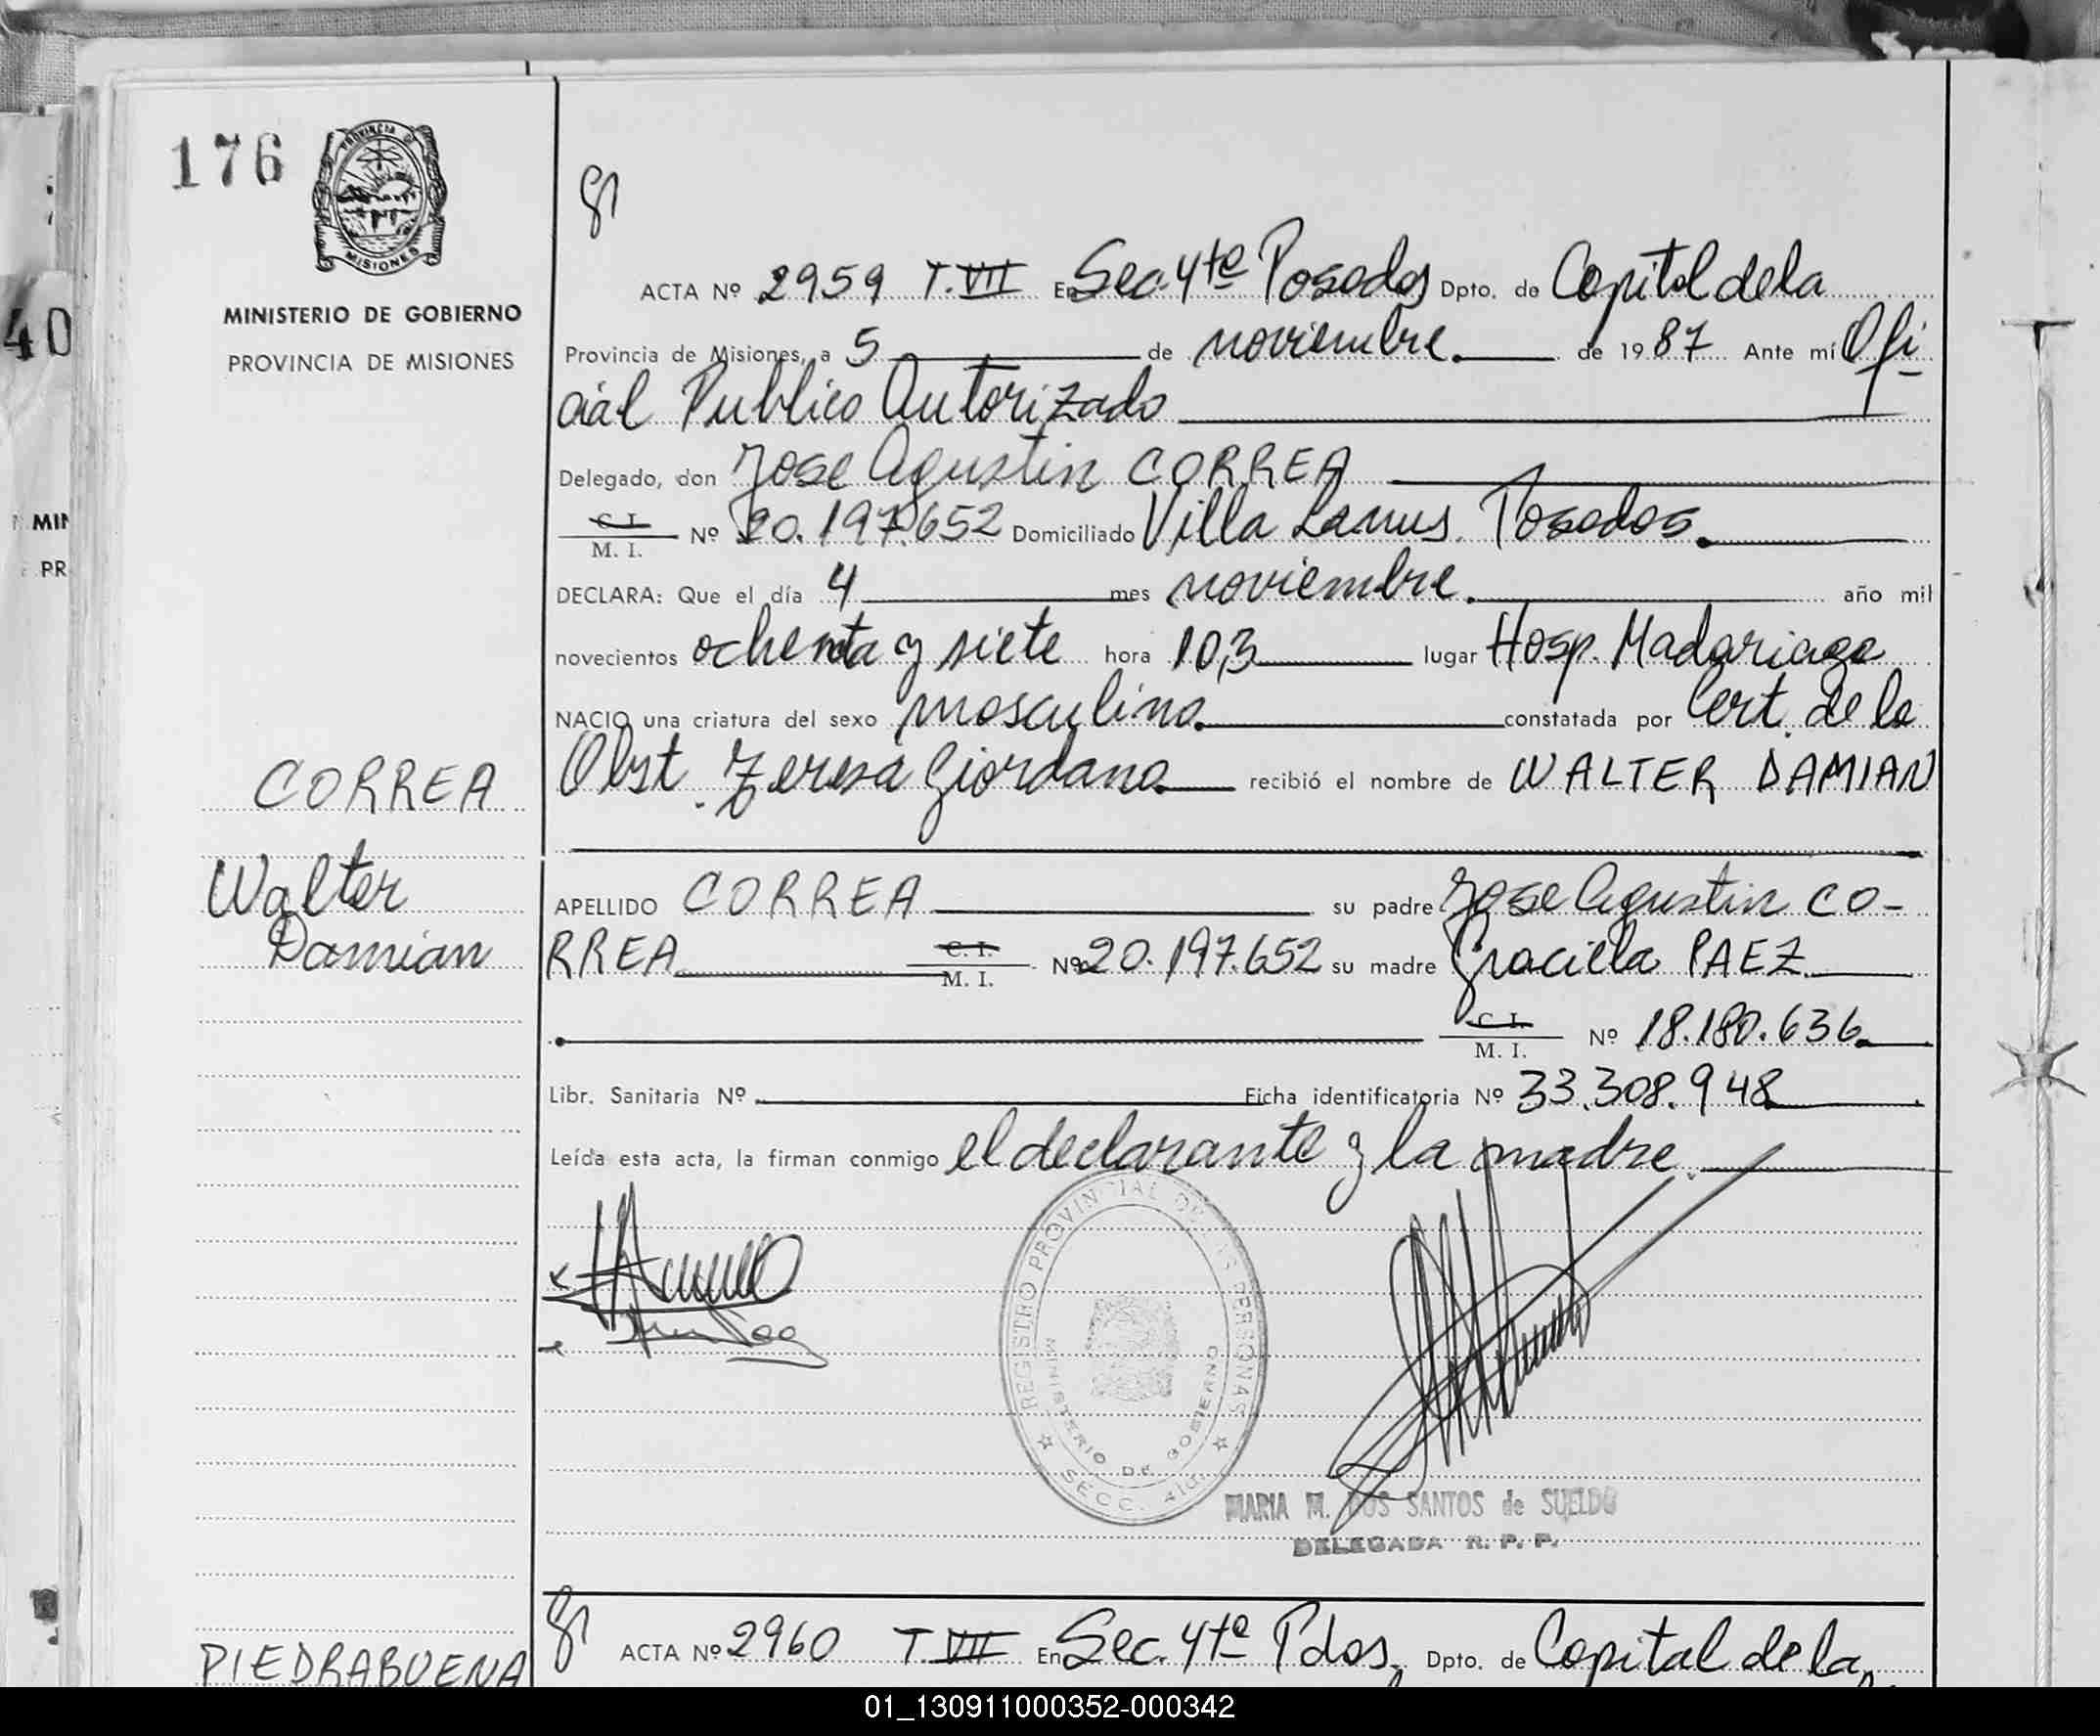 176
PROVINCIA D
MISIONES
MINISTERIO DE GOBIERNO
PROVINCIA DE MISIONES
40
MIN
PR
CORREA
Walter
Damian
ACTA Nº 2959 T. VII En Sec. 4ta Posadas Dpto. de Capital de la
Provincia de Misiones, a 5 de noviembre. de 1987 Ante mí Ofi-
cial Publico Autorizado
Delegado, don Jose Agustin CORREA
C. I. / M. I. Nº 20.197.652 Domiciliado Villa Lanus. Posadas.
DECLARA: Que el día 4 mes noviembre. año mil
novecientos ochenta y siete hora 10,3 lugar Hosp. Madariaga
NACIO una criatura del sexo masculino. constatada por Cert. de la
Obst. Teresa Giordano. recibió el nombre de WALTER DAMIAN
APELLIDO CORREA su padre Jose Agustin CO-
RREA C. I. / M. I. Nº 20.197.652 su madre Graciela PAEZ.
C. I. / M. I. Nº 18.180.636.
Libr. Sanitaria Nº Ficha identificatoria Nº 33.308.948
Leída esta acta, la firman conmigo el declarante y la madre.
REGISTRO PROVINCIAL DE LAS PERSONAS
MINISTERIO DE GOBIERNO
SECC. 4ta.
MARIA M. DOS SANTOS de SUELDO
DELEGADA R. P. P.
PIEDRABUENA
ACTA Nº 2960 T. VII En Sec. 4ta Pdas. Dpto. de Capital de la
01_130911000352-000342